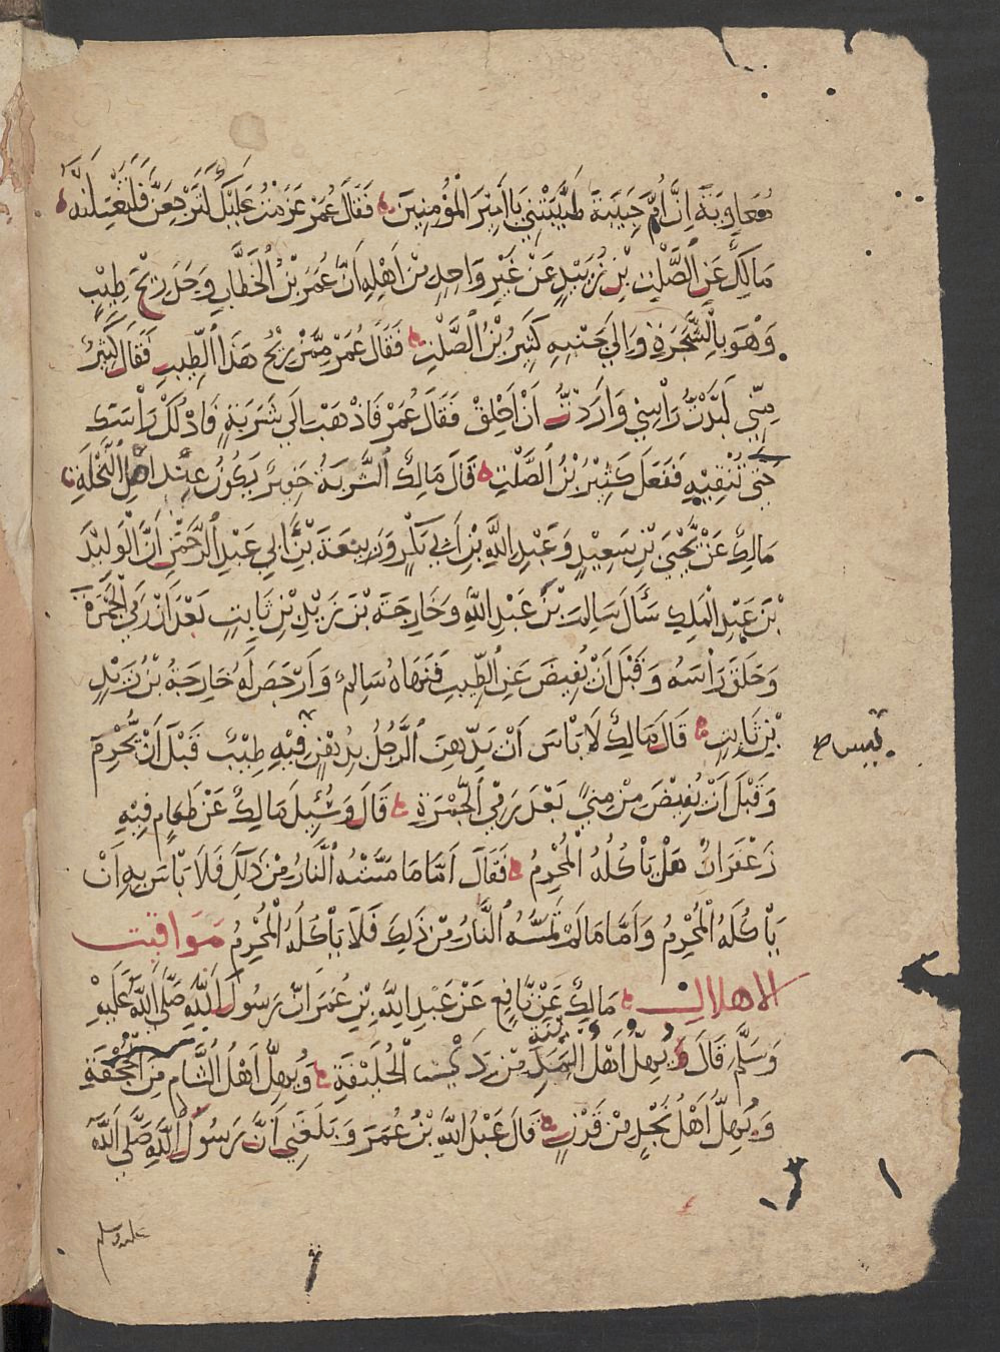 مُعَاوِيَةَ اِنَّ اُمَّ حَبِيبَةَ طَيَّبَتْنِي يَا اَمِيرَ الْمُؤْمِنِينَ فَقَالَ عُمَرُ عَزَمْتُ عَلَيْكَ لَتَرْجِعَنَّ فَلْتَغْسِلَنَّهُ
مَالِكٌ عَنِ الصَّلْتِ بْنِ زُبَيْدٍ عَنْ غَيْرِ وَاحِدٍ مِنْ اَهْلِهِ اَنَّ عُمَرَ بْنَ الْخَطَّابِ وَجَدَ رِيْحَ طِيْبٍ
وَهُوَ بِالشَّجَرَةِ وَاِلَي جَنْبِهِ كَثِيرُ بْنُ الصَّلْتِ فَقَالَ عُمَرُ مِمَّنْ رِيْحُ هَذَا الطِّيبِ فَقَالَ كَثِيرٌ
مِنِّي لَبَّدْتُ رَأْسِي وَاَرَدْتُ اَنْ اَحْلِقَ فَقَالَ عُمَرُ فَاذْهَبْ اِلَي شَرَبَةٍ فَادْلُكْ رَأْسَكَ
حَتَّي تُنْقِيَهِ فَفَعَلَ كَثِيْرُ بْنُ الصَّلْتِ قَالَ مَالِكٌ الشَّرَبَةُ حَوِيرٌ يَكُونُ عِنْدَ اَصْلِ النَّخْلَةِ
مَالِكٌ عَنْ يَحْيَي بْنِ سَعِيْدٍ وَعَبْدِ اللَّهِ بْنِ اَبِي بَكْرٍ وَرَبِيعَةَ بْنِ اَبِي عَبْدِ الرَّحْمَنِ اَنَّ الْوَلِيْدَ
بْنَ عَبْدِ الْمَلِكِ سَأَلَ سَالِمَ بْنَ عَبْدِ اللَّهِ وَخَارِجَةَ بْنَ زَيْدِ بْنِ ثَابِتٍ بَعْدَ اَنْ رَمَي الْجَمْرَةَ
وَحَلَقَ رَأْسَهُ وَقَبْلَ اَنْ يُفِيضَ عَنِ الطِّيبِ فَنَهَاهُ سَالِمٌ وَاَرْخَصَ لَهُ خَارِجَةُ بْنُ زَيْدِ
بْنِ ثَابِتٍ قَالَ مَالِكٌ لَا بَأْسَ اَنْ يَدَّهِنَ الرَّجُلُ بِدُهْنٍ فِيْهِ طِيْبٌ قَبْلَ اَنْ يُّحْرِمَ
وَقَبْلَ اَنْ يُفِيْضَ مِنْ مِنيً بَعْدَ رَمْيِ الْجَمْرَةِ قَالَ وَسُئِلَ مَالِكٌ عَنْ طَعَامٍ فِيْهِ
زَعْفَرَانٌ هَلْ يَأْكُلُهُ الْمُحْرِمُ فَقَالَ اَمَّا مَا مَسَّتْهُ النَّارُ مِنْ ذَلِكَ فَلَا بَأْسَ بِهِ اَنْ
يَأْكُلَهُ الْمُحْرِمُ وَاَمَّا مَا لَمْ تَمَسَّهُ النَّارُ مِنْ ذَلِكَ فَلَا يَأْكُلُهُ الْمُحْرِمُ مَوَاقِيت
الاهلال مَالِكٌ عَنْ نَّافِعٍ عَنْ عَبْدِ اللَّهِ بْنِ عُمَرَ اَنَّ رَسُولَ اللَّهِ صَلَّي اللَّهُ عَلَيْهِ
وَسَلَّمَ قَالَ يُهِلُّ اَهْلُ الْمَدِينَةِ مِنْ ذِي الْحُلَيْفَةِ وَيُهِلُّ اَهْلُ الشَّامِ مِنَ الْجُحْفَةِ
وَيُهِلُّ اَهْلُ نَجْدٍ مِنْ قَرْنٍ قَالَ عَبْدُ اللَّهِ بْنُ عُمَرَ وَبَلَغَنِي اَنَّ رَسُولَ اللَّهِ صَلَّي اللَّهُ
عليه وسلم